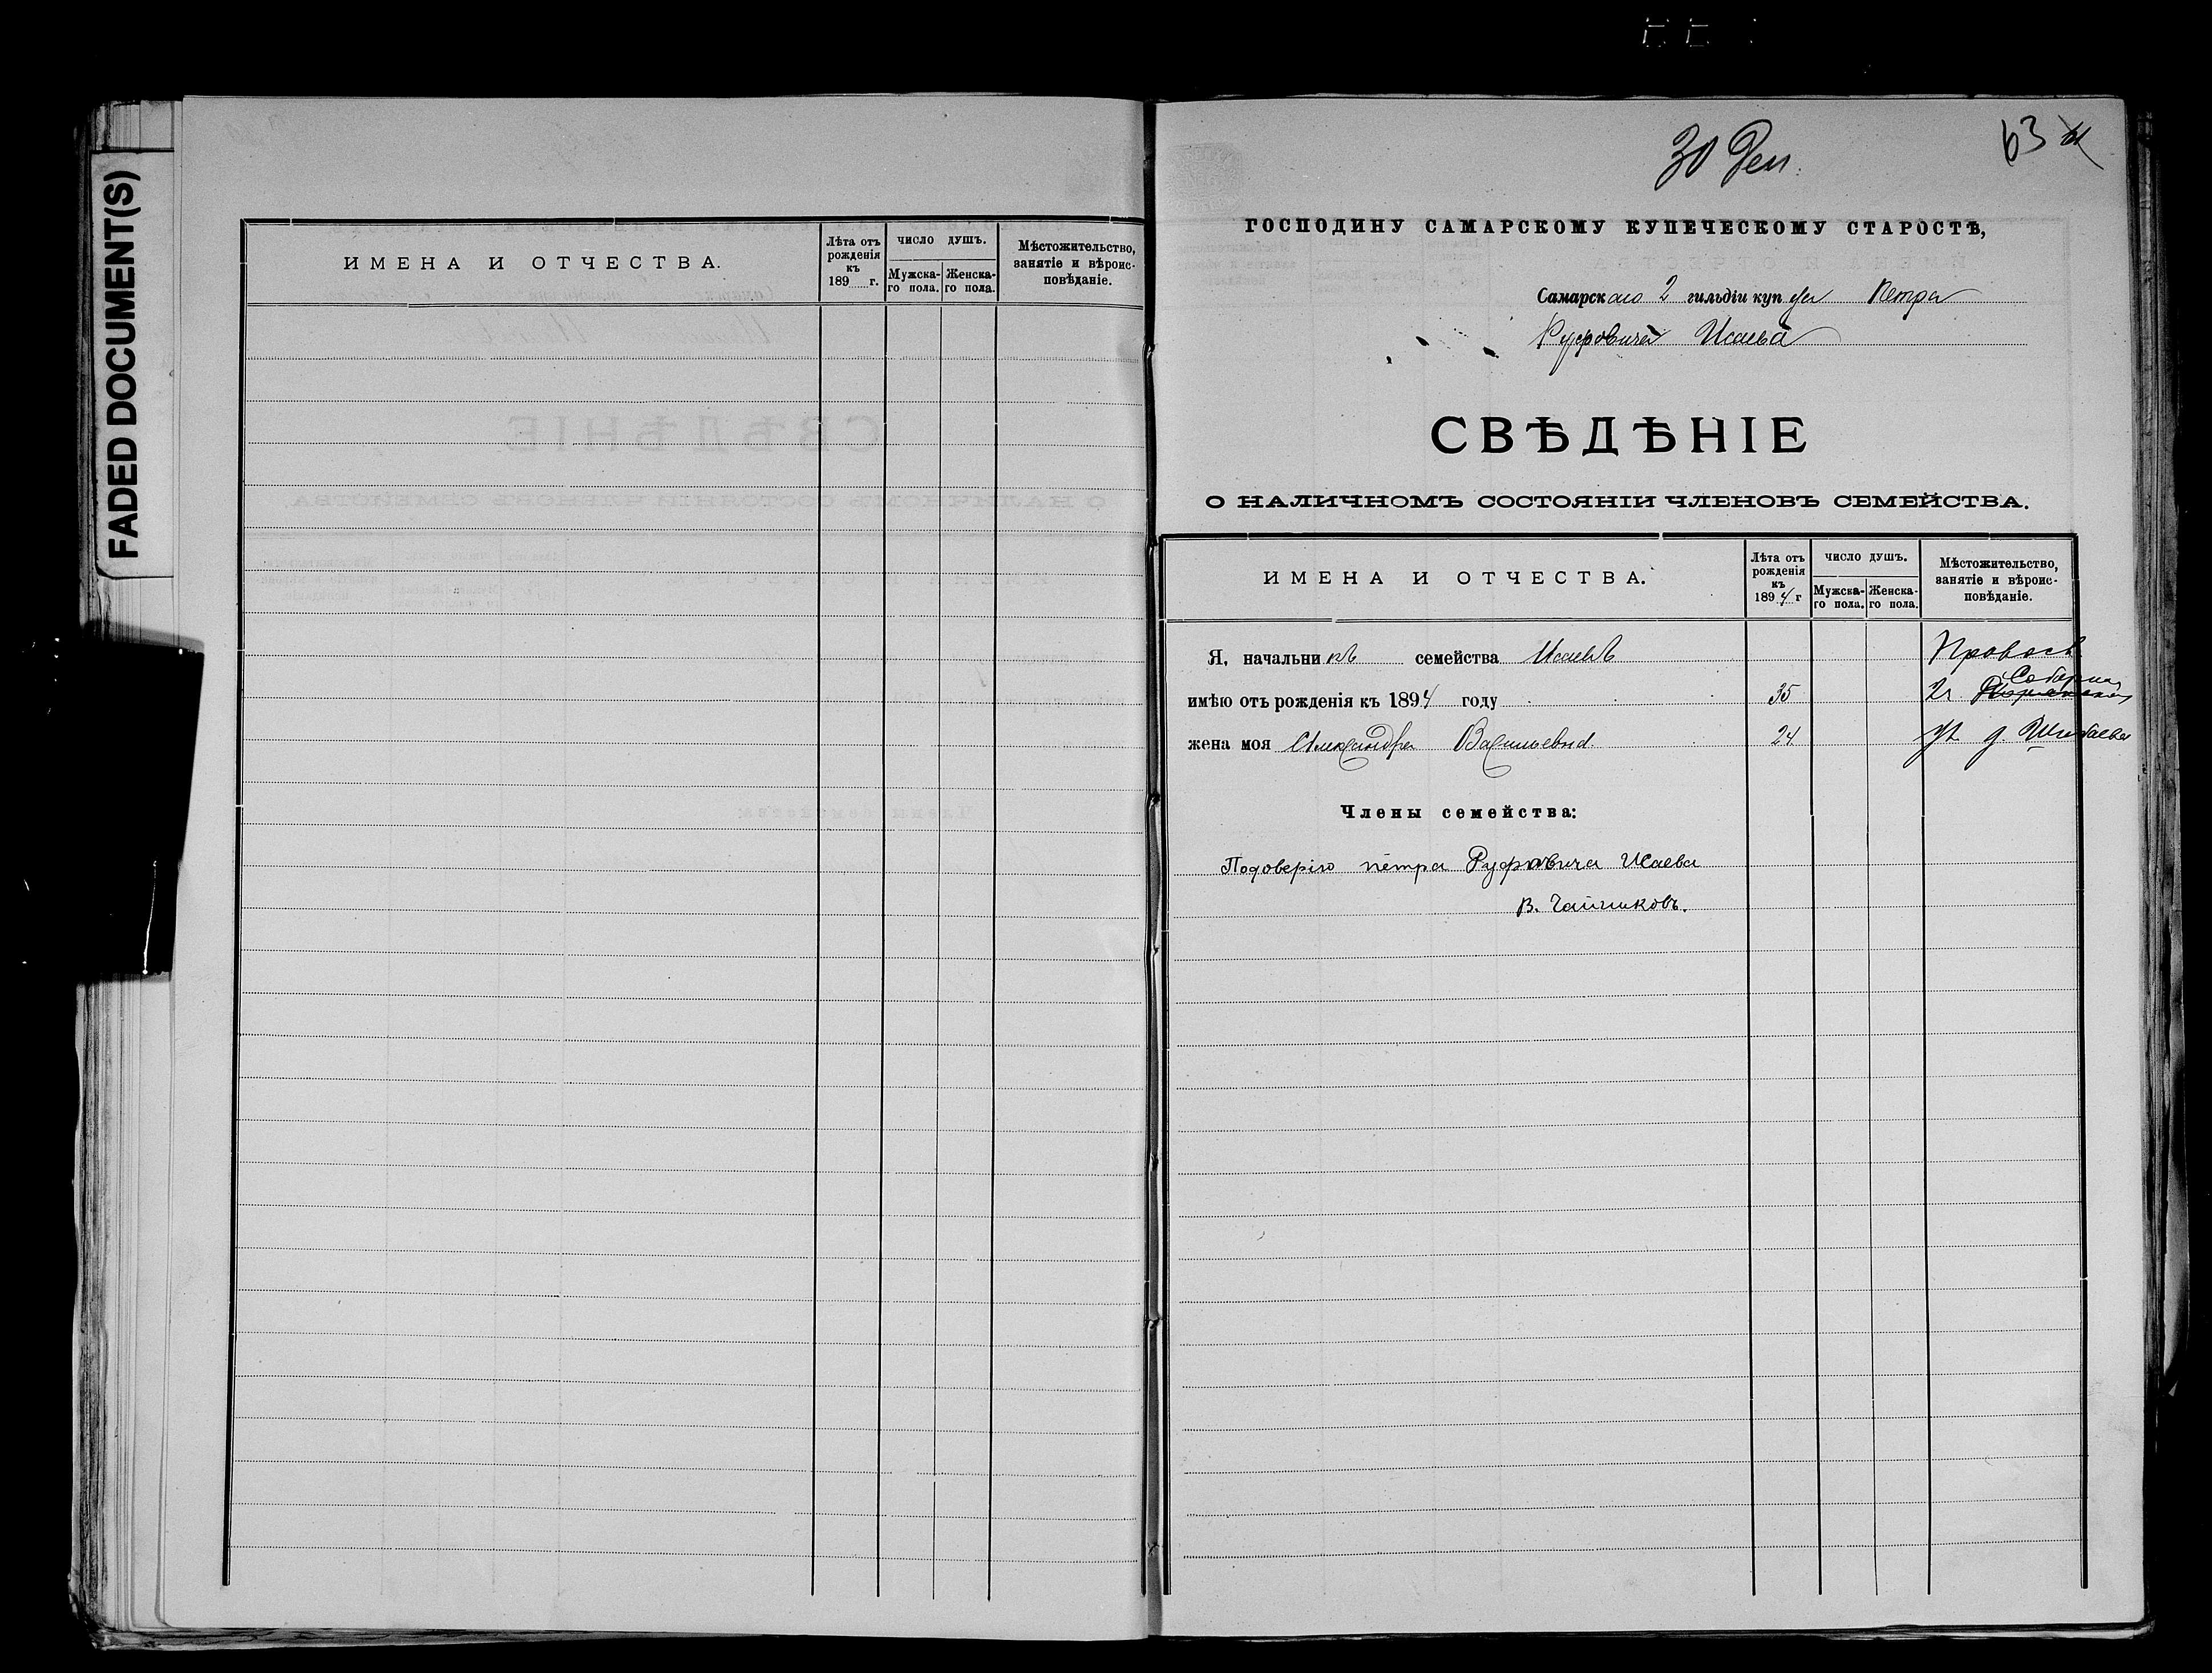 FADED DOCUMENT(S)
ИМЕНА И ОТЧЕСТВА.
Лѣта отъ рожденія къ 189 г.
ЧИСЛО ДУШЪ.
Мужска-го пола.
Женска-го пола.
Мѣстожительство, занятіе и вѣроис-повѣданіе.
30 Дек.
63
ГОСПОДИНУ САМАРСКОМУ КУПЕЧЕСКОМУ СТАРОСТѢ,
Самарскаго 2 гильдіи купца Петра
Руфовича Исаева
СВѢДѢНІЕ
О НАЛИЧНОМЪ СОСТОЯНІИ ЧЛЕНОВЪ СЕМЕЙСТВА.
ИМЕНА И ОТЧЕСТВА.
Лѣта отъ рожденія къ 1894 г
ЧИСЛО ДУШЪ.
Мужска-го пола.
Женска-го пола.
Мѣстожительство, занятіе и вѣроис-повѣданіе.
Я, начальникъ семейства Исаевъ Правосл
Соборная
имѣю отъ рожденія къ 1894 году 35 2ч
жена моя Александра Васильевна 24 д. Шибаева
Члены семейства:
Подоверію петра Руфовича Исаева
В. Чайниковъ.